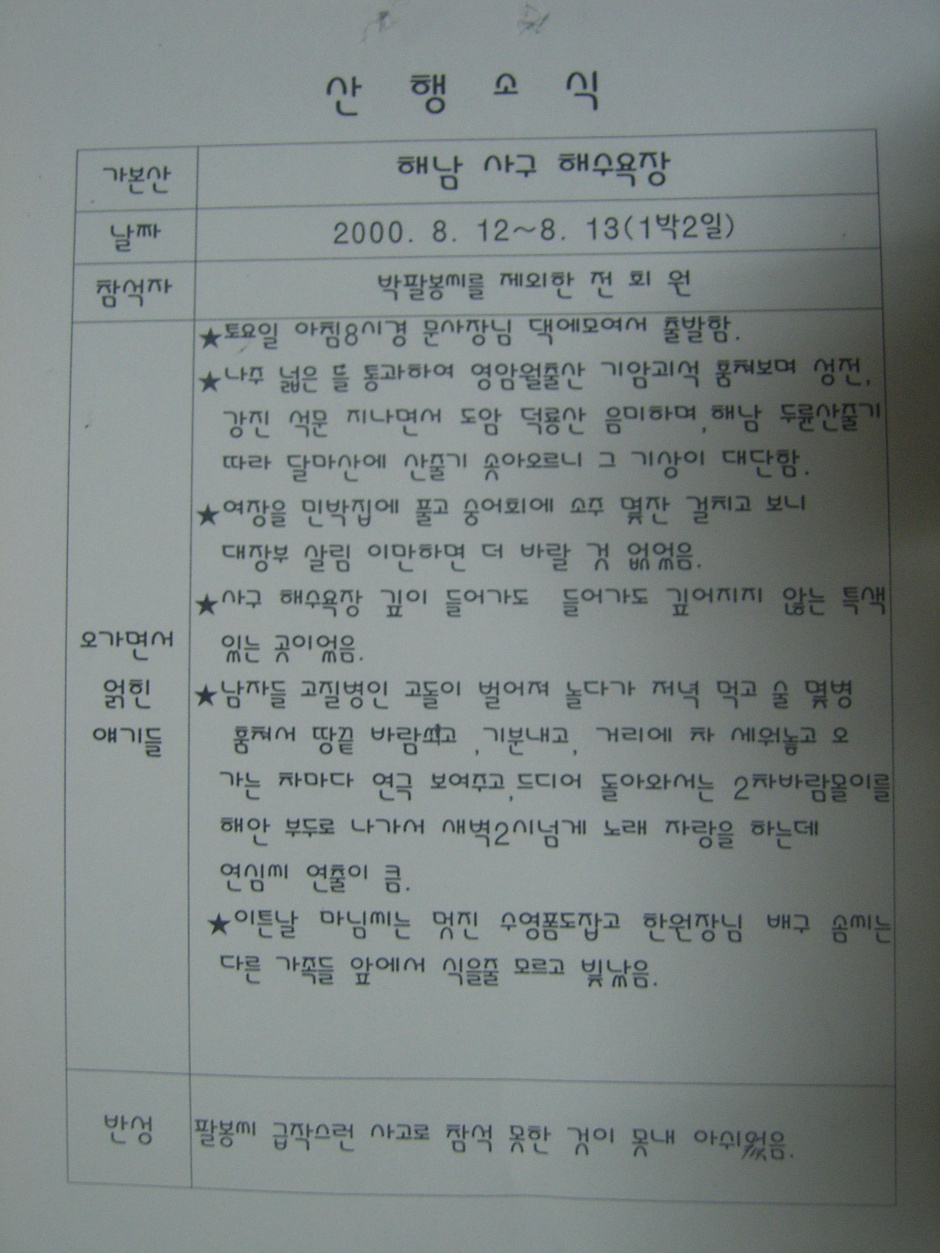 산 행 소 식
가본산 해남 사구 해수욕장
날짜 2000. 8. 12~8. 13(1박2일)
참석자 박팔봉씨를 제외한 전 회 원
★토요일 아침8시경 문사장님 댁에모여서 출발함.
★나주 넓은 들 통과하여 영암월출산 기암괴석 훔쳐보며 성전,
강진 석문 지나면서 도암 덕룡산 음미하며,해남 두륜산줄기
따라 달마산에 산줄기 솟아오르니 그 기상이 대단함.
★여장을 민박집에 풀고 숭어회에 소주 몇잔 걸치고 보니
대장부 살림 이만하면 더 바랄 것 없었음.
★사구 해수욕장 깊이 들어가도 들어가도 깊어지지 않는 특색
오가면서 있는 곳이었음.
얽힌 ★남자들 고질병인 고돌이 벌어져 놀다가 저녁 먹고 술 몇병
얘기들 훔쳐서 땅끝 바람쐬고 ,기분내고, 거리에 차 세워놓고 오
가는 차마다 연극 보여주고,드디어 돌아와서는 2차바람몰이를
해안 부두로 나가서 새벽2시넘게 노래 자랑을 하는데
연심씨 연출이 큼.
★이튿날 마님씨는 멋진 수영폼도잡고 한원장님 배구 솜씨는
다른 가족들 앞에서 식을줄 모르고 빛났음.
반성 팔봉씨 급작스런 사고로 참석 못한 것이 못내 아쉬웠음.